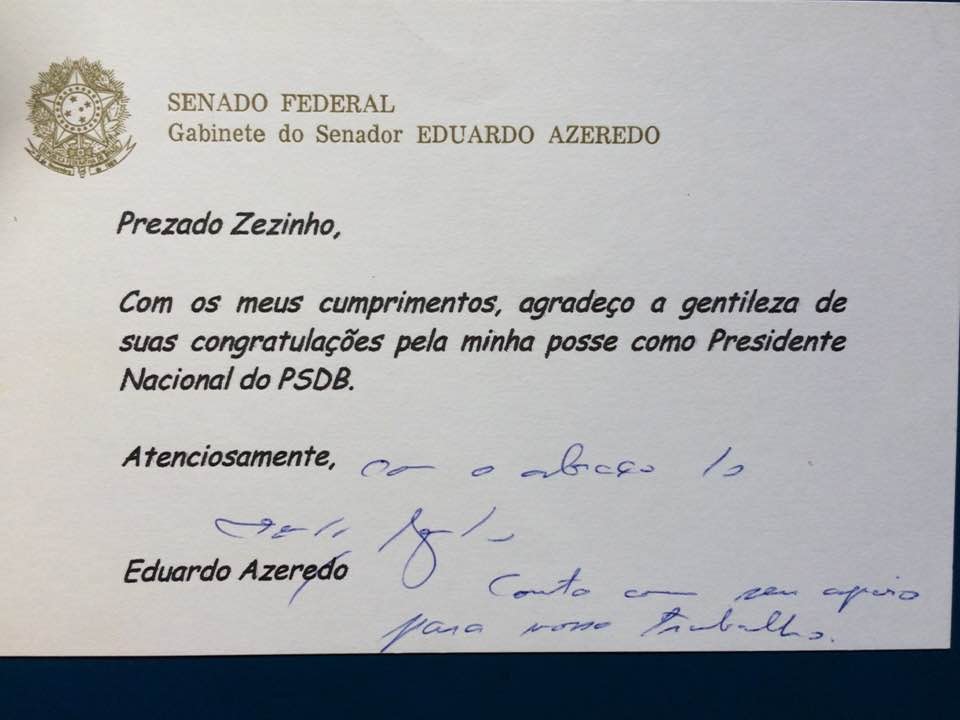 SENADO FEDERAL
Gabinete do Senador EDUARDO AZEREDO
Prezado Zezinho,
Com os meus cumprimentos, agradeço a gentileza de
suas congratulações pela minha posse como Presidente
Nacional do PSDB.
Atenciosamente, com o abraço do
Eduardo Azeredo
Conto com seu apoio
para nosso trabalho.